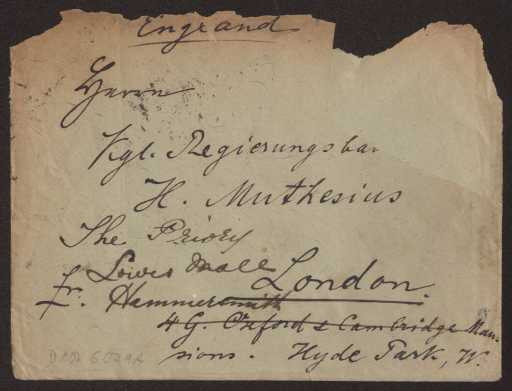 England
Herrn
Kgl. Regierungsba
H. Muthesius
The Priory
Lower Mall London.
fr. Hammersmith
4 G. Oxford & Cambridge Man-
sions. Hyde Park, W.